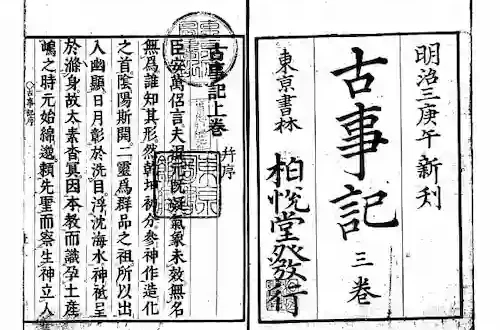 明治三庚午新刻
古事記 三巻
東亰書林
柏悦堂發行
古事記上巻 并序
臣安萬侶言夫混元既凝氣象未效無名
無爲誰知其形然乾坤初分參神作造化
之首陰陽斯開二靈爲群品之祖所以出
入幽顯日月彰於洗目浮沈海水神祗呈
於滌身故太素杳冥因本教而識孕土產
嶋之時元始綿邈頼先聖而察生神立人
古事記序